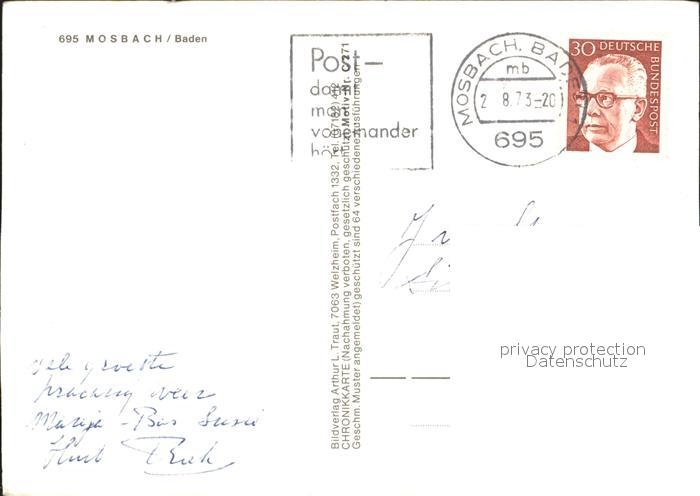 695 MOSBACH / Baden
Post-
damit
man
voneinander
hö
MOSBACH, BADEN
mb
2 8.73-20
695
30 DEUTSCHE
BUNDESPOST
Bildverlag Arthur L. Traut, 7063 Welzheim, Postfach 1332, Tel. (07182)
CHRONIKKARTE (Nachahmung verboten, gesetzlich geschützt) Motiv-Nr. C/271
Geschm. Muster angemeldet) geschützt sind 64 verschiedene Ausführungen
privacy protection
Datenschutz
vele groette
prachtig weer
Marija - Bas Susie
Huub